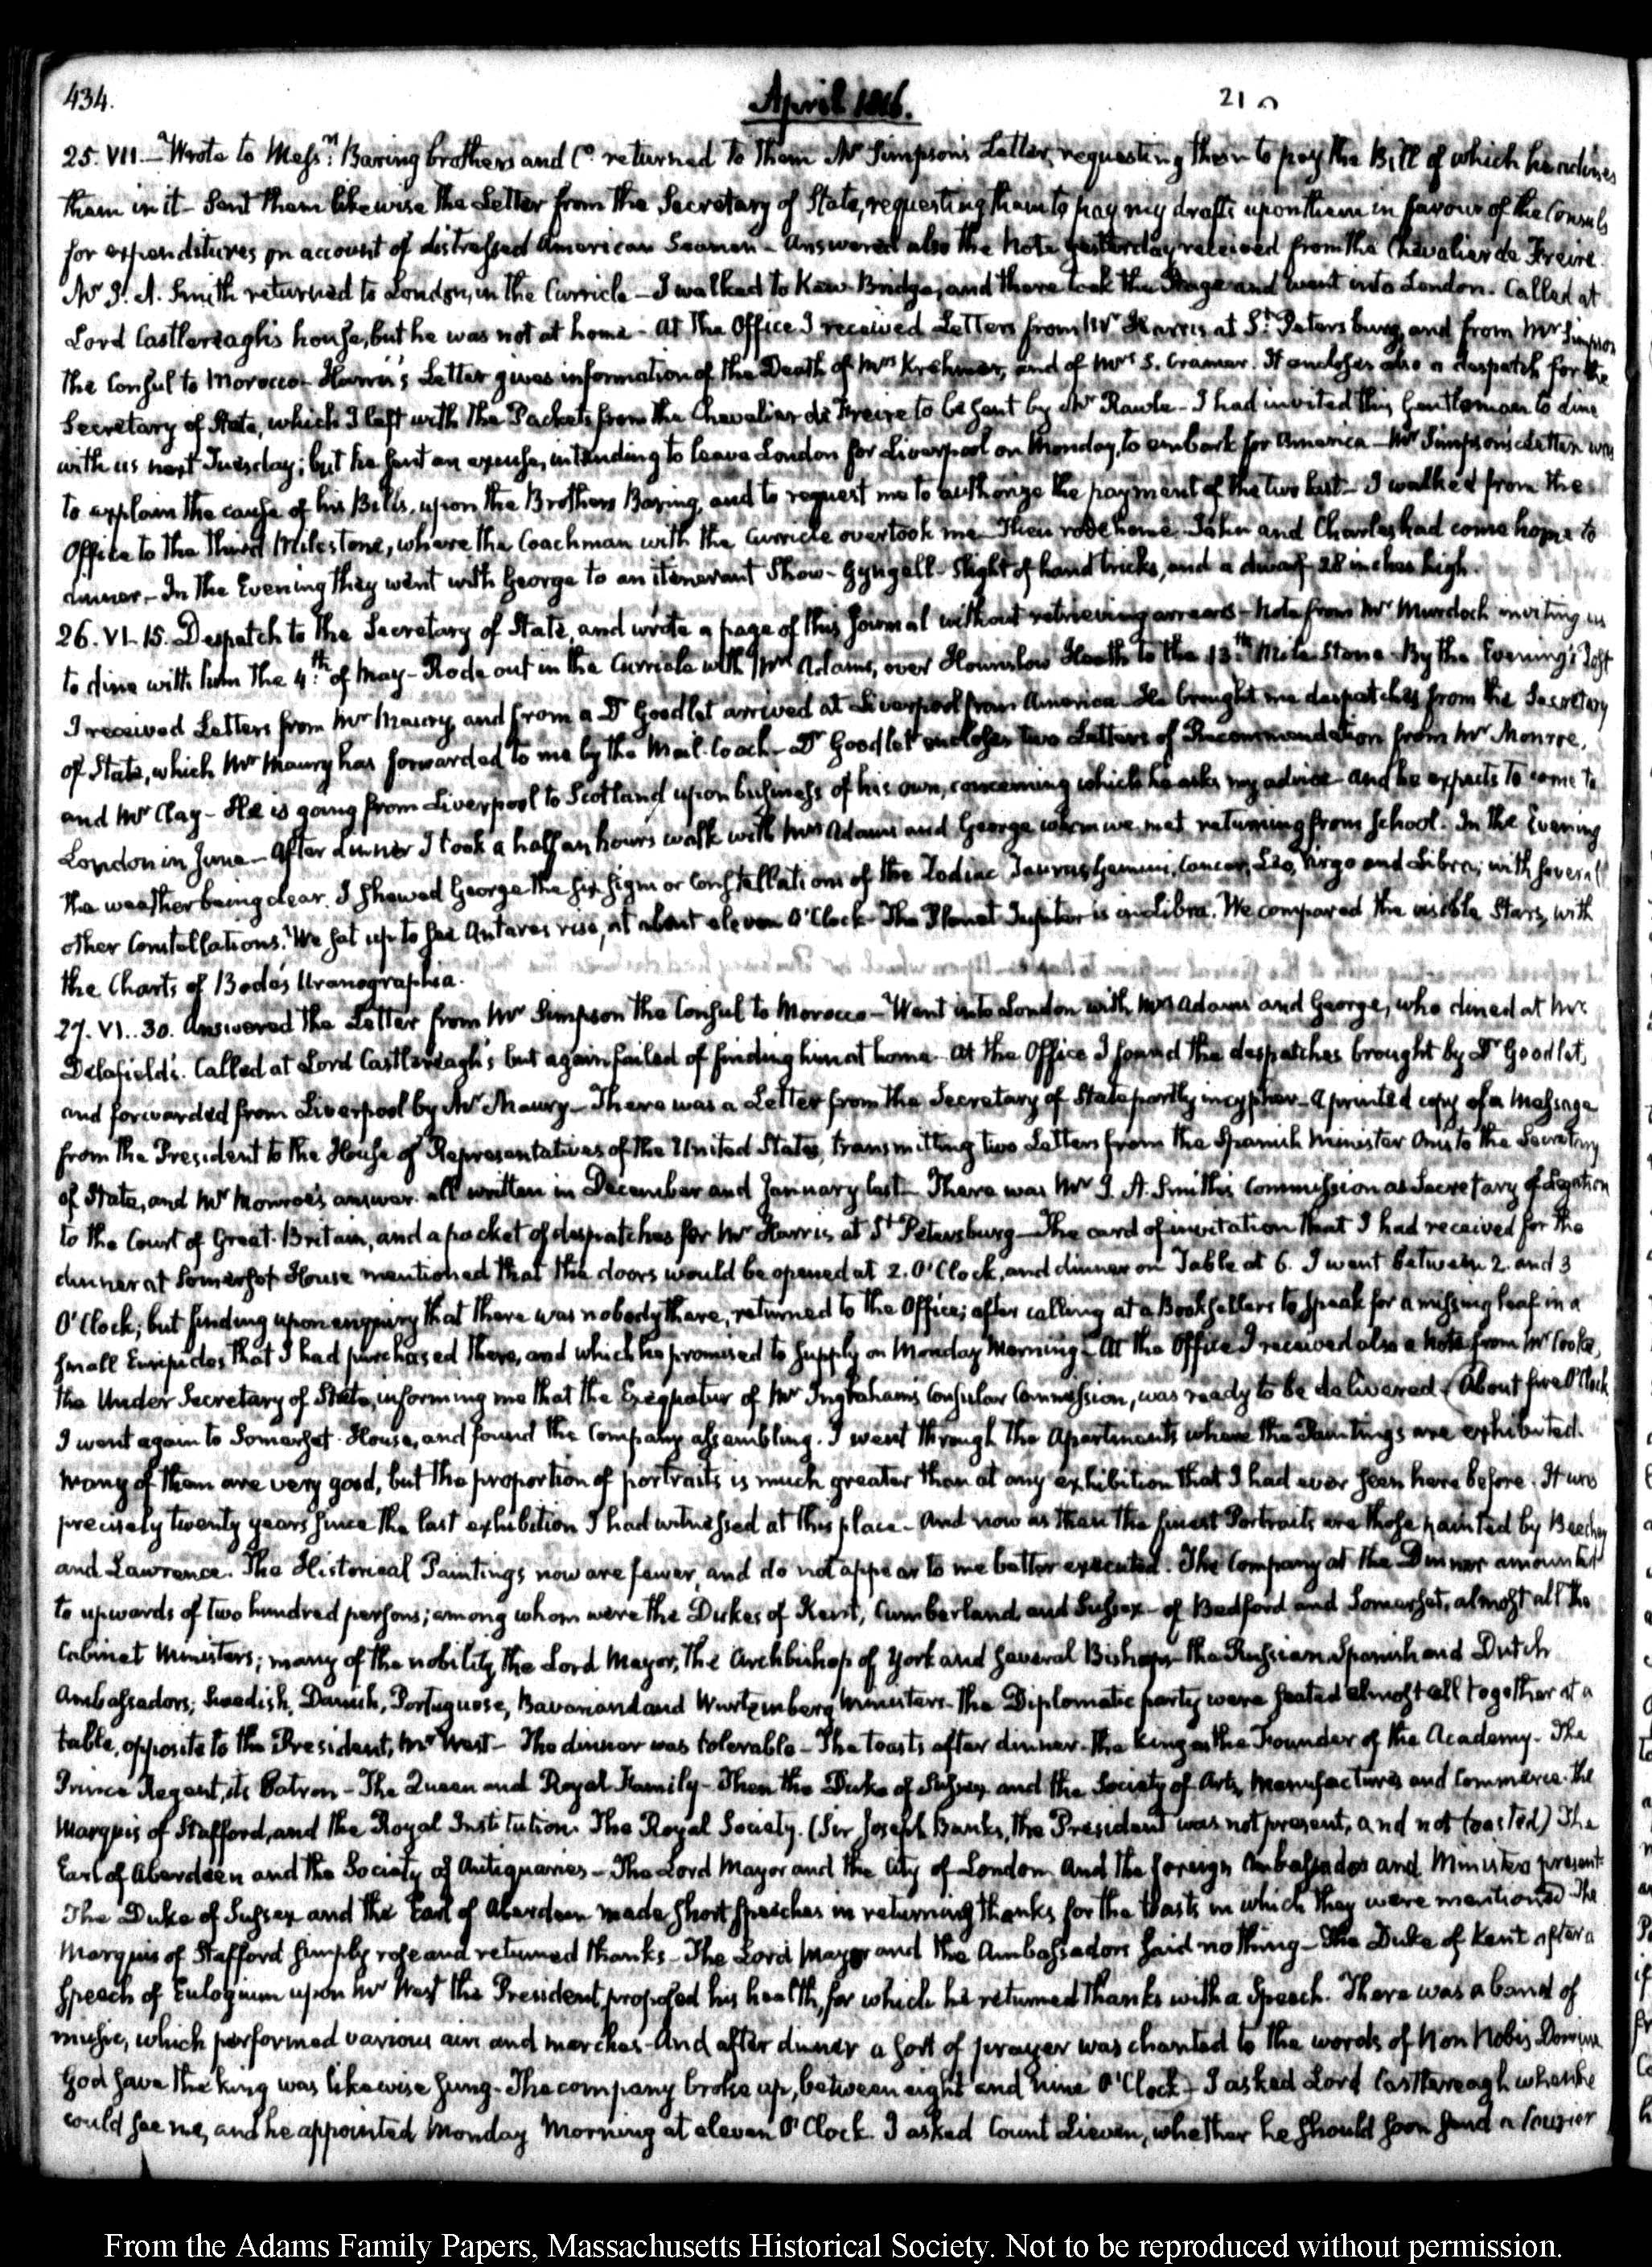 434.
April 1816.
21
25. VII. Wrote to Mess.rs Baring brothers and Co. returned to them Mr Simpson's Letter, requesting them to pay the Bill of which he advises
them in it - Sent them likewise the Letter from the Secretary of State, requesting them to pay my drafts upon them in favour of the Consuls
for expenditures on account of distressed American Seamen - Answered also the Note yesterday received from the Chevalier de Freire.
Mr J. A. Smith returned to London, in the Curricle - I walked to Kew-Bridge, and there took the Stage and went into London. Called at
Lord Castlereagh's house, but he was not at home - At the Office I received Letters from Mr Harris at St. Petersburg, and from Mr Simpson
the Consul to Morocco - Harris's Letter gives information of the Death of Mrs Krehmer, and of Mrs S. Cramer. It encloses also a despatch for the
Secretary of State, which I left with the Packets from the Chevalier de Freire to be sent by Mr Rawle - I had invited this Gentleman to dine
with us next Tuesday; but he sent an excuse, intending to leave London for Liverpool on Monday, to embark for America - Mr Simpson's Letter was
to explain the cause of his Bills, upon the Brothers Baring, and to request me to authorize the payment of the two last - I walked from the
Office to the Third Milestone, where the Coachman with the Curricle overtook me - Then rode home. John and Charles had come home to
dinner - In the Evening they went with George to an itenerant Show - Gyngell - Slight of hand tricks, and a dwarf 28 inches high.
26. VI-15. Despatch to the Secretary of State, and wrote a page of this Journal without retrieving arrears - Note from Mr Murdoch inviting us
to dine with him the 4th of May - Rode out in the Curricle with Mrs Adams, over Hounslow Heath to the 13th Mile Stone - By the Evening's Post
I received Letters from Mr Maury, and from a Dr Goodlet arrived at Liverpool from America - He brought me despatches from the Secretary
of State, which Mr Maury has forwarded to me by the Mail-Coach - Dr Goodlet encloses two Letters of Recommendation from Mr Monroe,
and Mr Clay - He is going from Liverpool to Scotland upon business of his own, concerning which he asks my advice - and he expects to come to
London in June - After dinner I took a half an hours walk with Mrs Adams and George whom we met returning from School. In the Evening
the weather being clear, I shewed George the six signs or Constellations of the Zodiac Taurus, Gemini, Cancer, Leo, Virgo and Libra; with several
other Constellations. We sat up to see Antares rise, at about eleven O'Clock - The Planet Jupiter is in Libra. We compared the visible Stars, with
the Charts of Bode's Uranographia.
27. VI..30. Answered the Letter from Mr Simpson the Consul to Morocco - Went into London with Mrs Adams and George, who dined at Mr
Delafield's. Called at Lord Castlereagh's but again failed of finding him at home - At the Office I found the despatches brought by Dr Goodlet,
and forwarded from Liverpool by Mr Maury - There was a Letter from the Secretary of State partly in cypher - a printed copy of a Message
from the President to the House of Representatives of the United States, transmitting two Letters from the Spanish Minister Onis to the Secretary
of State, and Mr Monroe's answer. all written in December and January last - There was Mr J. A. Smith's Commission as Secretary of Legation
to the Court of Great-Britain, and a packet of despatches for Mr Harris at St Petersburg - The card of invitation that I had received for the
dinner at Somerset House mentioned that the doors would be opened at 2. O'Clock, and dinner on Table at 6. I went between 2. and 3
O'Clock; but finding upon enquiry that there was nobody there, returned to the Office; after calling at a Booksellers to speak for a missing leaf in a
small Euripides that I had purchased there, and which he promised to supply on Monday Morning - At the Office I received also a Note from Mr Cooke,
the Under Secretary of State, informing me that the Exequatur of Mr Ingraham's Consular Commission, was ready to be delivered. About five O'Clock
I went again to Somerset-House, and found the Company assembling. I went through the Apartments where the Paintings are exhibited.
Many of them are very good, but the proportion of portraits is much greater than at any exhibition that I had ever seen here before. It was
precisely twenty years since the last exhibition I had witnessed at this place - And now as then the finest Portraits are those painted by Beechey
and Lawrence. The Historical Paintings now are fewer, and do not appear to me better executed. The Company at the Dinner amounted
to upwards of two hundred persons; among whom were the Dukes of Kent, Cumberland, and Sussex - of Bedford and Somerset, almost all the
Cabinet Ministers; many of the nobility, the Lord Mayor, the Archbishop of York and several Bishops - the Russian, Spanish and Dutch
Ambassadors; Swedish, Danish, Portuguese, Bavarian and Wurtemberg Ministers. The Diplomatic party were seated almost all together at a
table, opposite to the President, Mr West - The dinner was tolerable - The toasts after dinner - The King as the Founder of the Academy - The
Prince Regent, its Patron - The Queen and Royal Family - Then the Duke of Sussex and the Society of Arts, Manufactures and Commerce. The
Marquis of Stafford, and the Royal Institution. The Royal Society. (Sir Joseph Banks, the President was not present, and not toasted) The
Earl of Aberdeen and the Society of Antiquaries - The Lord Mayor and the City of London. And the foreign Ambassadors and Ministers present.
The Duke of Sussex and the Earl of Aberdeen made short speeches in returning thanks for the toasts in which they were mentioned The
Marquis of Stafford simply rose and returned thanks - The Lord Mayor and the Ambassadors said nothing - The Duke of Kent after a
speech of Eulogium upon Mr West the President, proposed his health, for which he returned thanks with a Speech. There was a band of
music, which performed various airs and marches - And after dinner a sort of prayer was chanted to the words of Non Nobis Domine
God save the King was likewise sung - The company broke up, between eight and nine O'Clock - I asked Lord Castlereagh when he
could see me, and he appointed Monday Morning at eleven O'Clock. I asked Count Lieven, whether he should soon send a Courier
From the Adams Family Papers, Massachusetts Historical Society. Not to be reproduced without permission.